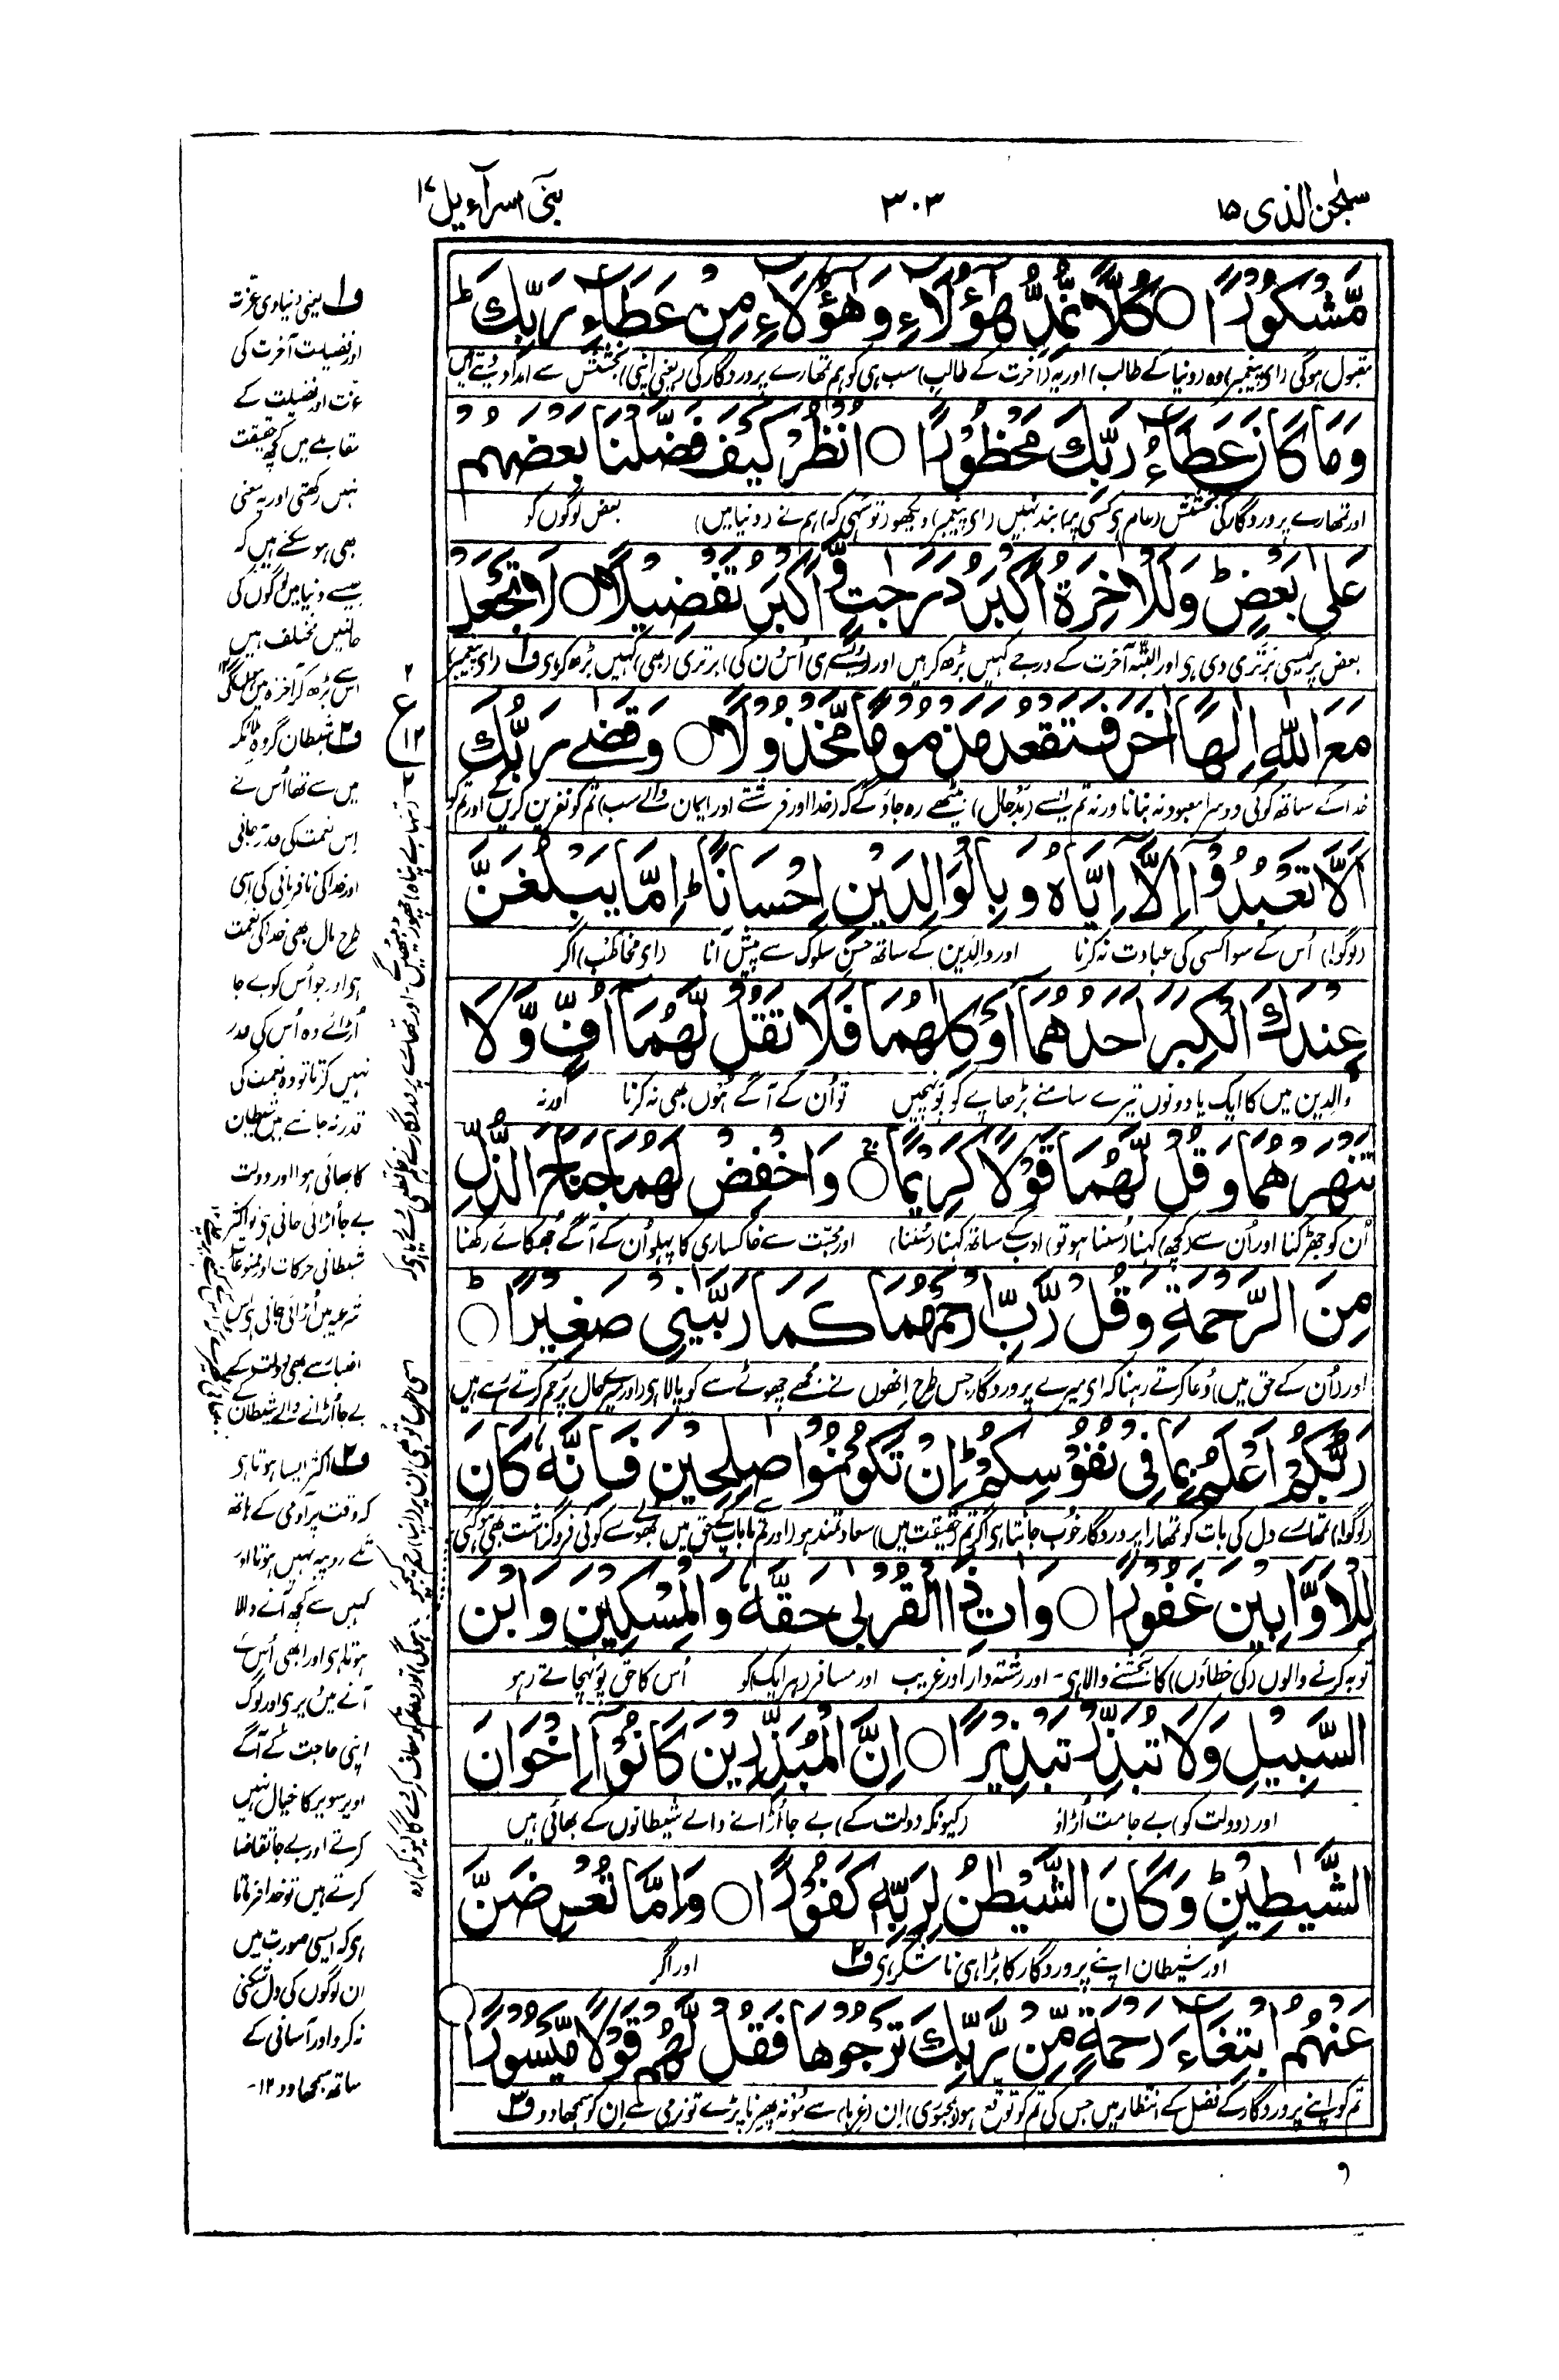 سبحٰن الذی ۱۵
۳۰۳
بنیٓ اسرآءیل ۱۷
مَّشْكُوْرًا ○ كُلًّا نُّمِدُّ هٰٓؤُلَآءِ وَ هٰٓؤُلَآءِ مِنْ عَطَآءِ رَبِّكَ ؕ
مقبول ہوگی (ای پیغمبر) وہ (دنیا کے طالب) اور یہ (آخرت کے طالب) سب ہی کو ہم تمھارے پروردگار کی (یعنی اپنی) بخشش سے امداد دیتے ہیں
وَ مَا كَانَ عَطَآءُ رَبِّكَ مَحْظُوْرًا ○ اُنْظُرْ كَيْفَ فَضَّلْنَا بَعْضَهُمْ
اور تمھارے پروردگار کی بخشش (عام ہی کسی پر) بند نہیں (ای پیغمبر) دیکھو (تو سہی کہ) ہم نے (دنیا میں) بعض لوگوں کو
عَلٰى بَعْضٍ ؕ وَ لَلْاٰخِرَةُ اَكْبَرُ دَرَجٰتٍ وَّ اَكْبَرُ تَفْضِيْلًا ○ لَا تَجْعَلْ
بعض پر کیسی برتری دی ہی اور البتّہ آخرت کے درجے کہیں بڑھ کر ہیں اور (ویسے ہی اُس دن کی) برتری (بھی) کہیں بڑھ کر ہی ف۱ (ای پیغمبر)
مَعَ اللّٰهِ اِلٰهًا اٰخَرَ فَتَقْعُدَ مَذْمُوْمًا مَّخْذُوْلًا ○ وَ قَضٰے رَبُّكَ
خدا کے ساتھ کوئی دوسرا معبود نہ بنانا ورنہ تم ایسے (بدحال) بیٹھے رہ جاؤ گے کہ (خدا اور فرشتے اور ایمان والے سب) تم کو نفرین کریں گے اور تم کو
اَلَّا تَعْبُدُوْۤا اِلَّاۤ اِيَّاهُ وَ بِالْوَالِدَيْنِ اِحْسَانًا ؕ اِمَّا يَبْلُغَنَّ
(لوگو!) اُس کے سوا کسی کی عبادت نہ کرنا اور والدین کے ساتھ حسنِ سلوک سے پیش آنا (ای مخاطب) اگر
عِنْدَكَ الْكِبَرَ اَحَدُهُمَاۤ اَوْ كِلٰهُمَا فَلَا تَقُلْ لَّهُمَاۤ اُفٍّ وَّ لَا
والدین میں کا ایک یا دونوں تیرے سامنے بڑھاپے کو پہنچیں تو اُن کے آگے ہُوں بھی نہ کرنا اور نہ
تَنْهَرْهُمَا وَ قُلْ لَّهُمَا قَوْلًا كَرِيْمًا ○ وَ اخْفِضْ لَهُمَا جَنَاحَ الذُّلِّ
اُن کو جھڑکنا اور اُن سے (کچھ) کہنا (سننا ہو تو) ادب کے ساتھ کہنا (سننا) اور محبّت سے خاکساری کا پہلو اُن کے آگے جھکائے رکھنا
مِنَ الرَّحْمَةِ وَ قُلْ رَّبِّ ارْحَمْهُمَا كَمَا رَبَّيٰنِيْ صَغِيْرًا ؕ ○
اور (اُن کے حق میں) دُعا کرتے رہنا کہ ای میرے پروردگار جس طرح اِنھوں نے مجھے چھوٹے سے کو پالا ہی (اور میرے حال پر رحم کرتے رہے ہیں
رَبُّكُمْ اَعْلَمُ بِمَا فِيْ نُفُوْسِكُمْ ؕ اِنْ تَكُوْنُوْا صٰلِحِيْنَ فَاِنَّهٗ كَانَ
(لوگو!) تمھارے دل کی بات کو تمھارا پروردگار خوب جانتا ہی اگر تم (حقیقت میں) سعادتمند ہو (اور تم سے ماباپ کے حق میں بھولے سے کوئی فروگذاشت بھی ہو گئی
لِلْاَوَّابِيْنَ غَفُوْرًا ○ وَ اٰتِ ذَا الْقُرْبٰى حَقَّهٗ وَ الْمِسْكِيْنَ وَ ابْنَ
توبہ کرنے والوں (کی خطاؤں) کا بخشنے والا ہی۔ اور رشتہ دار اور غریب اور مسافر (ہر ایک) کو اُس کا حق پہنچاتے رہو
السَّبِيْلِ وَ لَا تُبَذِّرْ تَبْذِيْرًا ○ اِنَّ الْمُبَذِّرِيْنَ كَانُوْۤا اِخْوَانَ
اور (دولت کو) بے جا مت اُڑاؤ (کیونکہ دولت کے) بے جا اُڑانے والے شیطانوں کے بھائی ہیں
الشَّيٰطِيْنِ ؕ وَ كَانَ الشَّيْطٰنُ لِرَبِّهٖ كَفُوْرًا ○ وَ اِمَّا تُعْرِضَنَّ
اور شیطان اپنے پروردگار کا بڑا ہی ناشکر ہی ف۲ اور اگر
عَنْهُمُ ابْتِغَآءَ رَحْمَةٍ مِّنْ رَّبِّكَ تَرْجُوْهَا فَقُلْ لَّهُمْ قَوْلًا مَّيْسُوْرًا
تم کو اپنے پروردگار کے فضل کے انتظار میں جس کی تم کو توقع ہو (بجبوری) اِن (غربا) سے مُونہ پھیرنا پڑے تو نرمی سے اِن کو سمجھا دو ف۳
و
ف۱ یعنی دنیاوی عزت
اور فضیلت آخرت کی
عزت اور فضیلت کے
مقابلے میں کچھ حقیقت
نہیں رکھتی اور یہ معنی
بھی ہو سکتے ہیں کہ
جیسے دنیا میں لوگوں کی
حالتیں مختلف ہیں
اس سے بڑھ کر آخرۃ میں ہونگی ۱۲
ف۲ شیطان گروہ ملائکہ
میں سے تھا اُس نے
اِس نعمت کی قدر نہ جانی
اور خدا کی نافرمانی کی اسی
طرح مال بھی خدا کی نعمت
ہی اور جو اُس کو بے جا
اُڑائے وہ اُس کی قدر
نہیں کرتا تو وہ نعمت کی
قدر نہ جاننے میں شیطان
کا بھائی ہوا اور دولت
بے جا اُڑائی جاتی ہی تو اکثر
شیطانی حرکات اور ممنوعات
شرعیہ میں اُڑائی جاتی ہی اس
اعتبار سے بھی دولت کے
بے جا اُڑانے والے شیطان کے
ف۳ اکثر ایسا ہوتا ہی
کہ وقت پر آدمی کے ہاتھ
تلے روپیہ نہیں ہوتا اور
کہیں سے کچھ آنے والا
ہوتا ہی اور ابھی اُس کے
آنے میں دیر ہی اور لوگ
اپنی حاجت کے آگے
اویر سویر کا خیال نہیں
کرتے اور بے جا تقاضا
کرتے ہیں تو خدا فرماتا
ہی کہ ایسی صورت میں
ان لوگوں کی دل شکنی
نہ کرو اور آسانی کے
ساتھ سمجھا دو ۱۲-